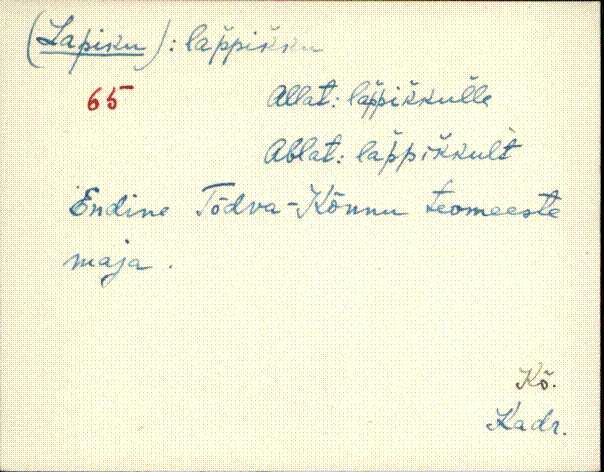 (Lapiku): lap̆pik̆ku
65
Allat: lap̆pik̆kul̆le
Ablat: lap̆pik̆kul̆t
Endine Tõdva-Kõnnu teomeeste
maja.
Kõ.
Kadr.